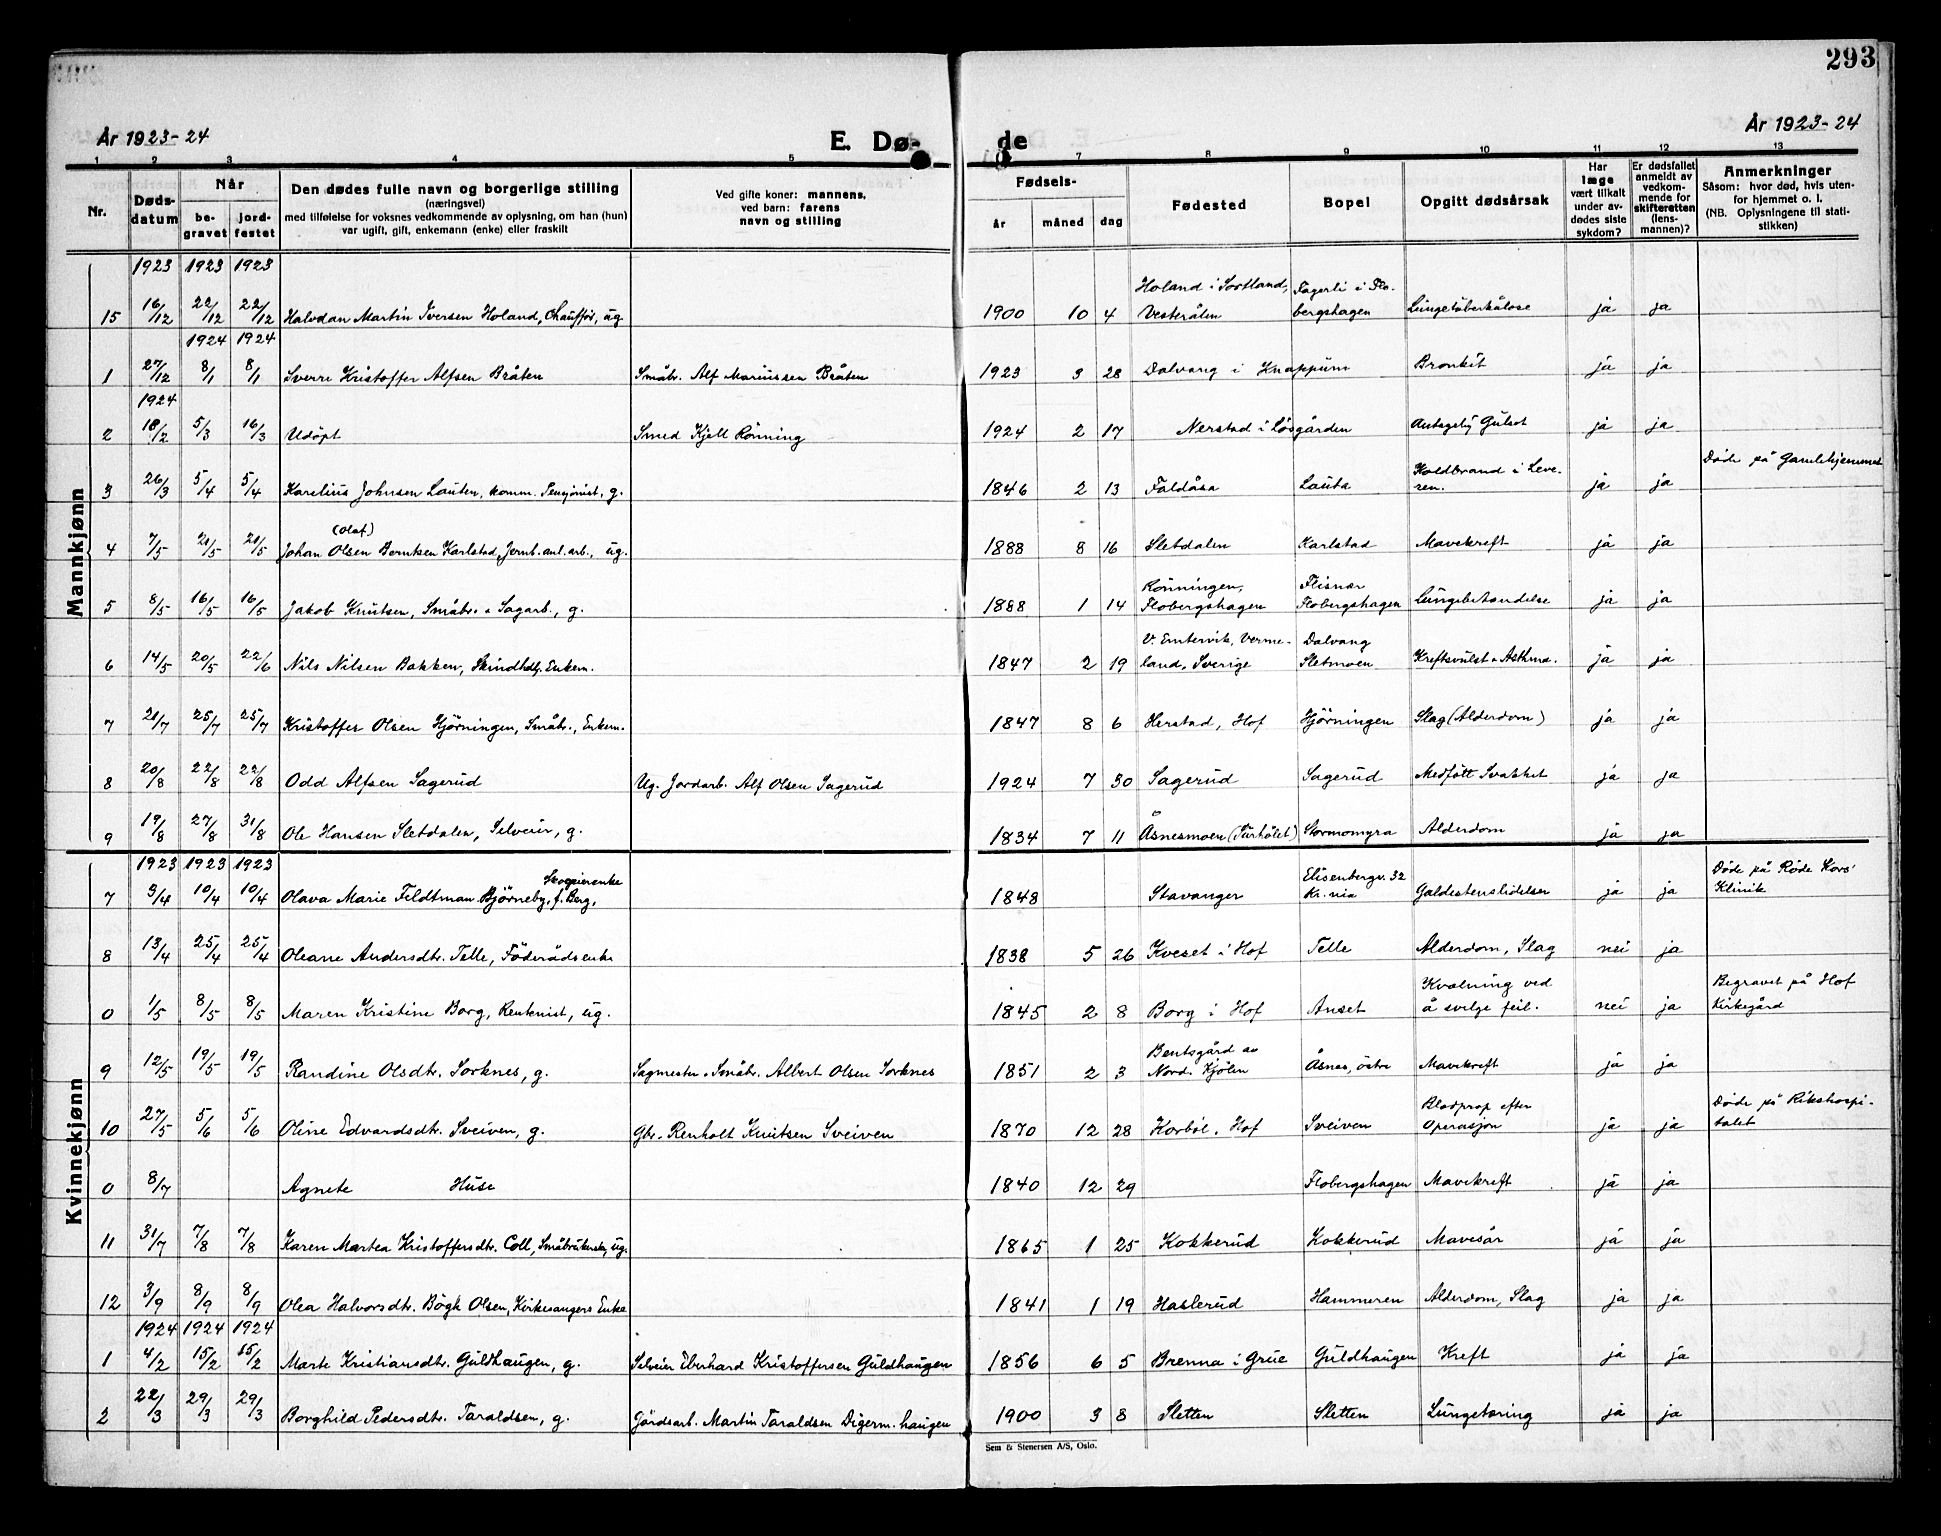 293
År 1923-24
E. Dø-
de
År 1923-24
1 2 3 4 5 7 8 9 10 11 12 13
Nr.
Døds-
datum
Når
be-
gravet
jord-
festet
Den dødes fulle navn og borgerlige stilling
(næringsvei)
med tilføielse for voksnes vedkommende av oplysning, om han (hun)
var ugift, gift, enkemann (enke) eller fraskilt
Ved gifte koner: mannens,
ved barn: farens
navn og stilling
Fødsels-
år måned dag
Fødested
Bopel
Opgitt dødsårsak
Har
læge
vært tilkalt
under av-
dødes siste
sykdom?
Er dødsfallet
anmeldt av
vedkom-
mende for
skifteretten
(lens-
mannen)?
Anmerkninger
Såsom: hvor død, hvis uten-
for hjemmet o. l.
(NB. Oplysningene til stati-
stikken)
Mannkjønn
1923 1923 1923
15 16/12 22/12 22/12 Halvdan Martin Iversen Holand, Chauffør, ug. 1900 10 4 Holand i Sortland, Vesterålen Fagerli i Flobergshagen Lungetuberkulose ja ja
1924 1924
1 27/12 8/1 8/1 Sverre Kristoffer Alfsen Bråten Småbr. Alf Mariussen Bråten 1923 3 28 Dalvang i Knappum Bronkit ja ja
1924
2 18/2 5/3 16/3 Udöpt Smed Kjell Rönning 1924 2 17 Nerstad i Lösgården Gulsot ja ja
3 26/3 5/4 5/4 Karelius Johnsen Lauten, komm. Pensjonist, g. 1846 2 13 Faldåsa Lauta Koldbrand i Leveren. ja ja Døde på Gamlehjemmet
(Olaf)
4 7/5 21/5 21/5 Johan Olsen Berntsen Karlstad, Jernb. anl. arb., ug. 1888 8 16 Sletdalen Karlstad Mavekreft ja ja
5 8/5 16/5 16/5 Jakob Knutsen, Småbr. o Sagarb., g. 1888 1 14 Rönningen, Flobergshagen Flisnær Flobergshagen Lungebetændelse ja ja
6 14/5 20/5 22/6 Nils Nilsen Bakken, Skindhdlr, Enkem. 1847 2 19 V. Emtervik, Vermeland, Sverige Dalvang Sletmoen Kreftsvulst o Asthma. ja ja
7 21/7 25/7 25/7 Kristoffer Olsen Hjörningen, Småbr., Enkem. 1847 8 6 Herstad, Hof Hjörningen Slag (Alderdom) ja ja
8 20/8 22/8 22/8 Odd Alfsen Sagerud Ug. Jordarb. Alf Olsen Sagerud 1924 7 30 Sagerud Sagerud Medfött Svakhet ja ja
9 19/8 27/8 31/8 Ole Hansen Sletdalen, Selveier, g. 1834 7 11 Åsnesmoen Stormomyra Alderdom ja ja
Kvinnekjønn
1923 1923 1923
7 3/4 10/4 10/4 Olava Marie Feldtman Björneby, f. Berg, Skogeierenke 1848 Stavanger Elisenbergv. 32 Kr.nia Galdestenslidelser ja ja Døde på Røde Kors' Klinik
8 13/4 25/4 25/4 Oleane Andersdtr. Telle, Föderådsenke 1838 5 26 Kveset i Hof Telle Alderdom, Slag nei ja
0 1/5 8/5 8/5 Maren Kristine Borg, Rentenist, ug. 1845 2 8 Borg i Hof Anset Kvælning ved å svelge feil. nei ja Begravet på Hof Kirkegård
9 12/5 19/5 19/5 Randine Olsdtr. Sorknes, g. Sagmester o Småbr. Albert Olsen Sorknes 1851 2 3 Bentsgård av Nord. Kjölen Åsnes, östre Mavekreft ja ja
10 27/5 5/6 5/6 Oline Edvardsdtr. Sveiven, g. Gbr. Renholt Knutsen Sveiven 1870 12 28 Korböl, Hof Sveiven Blodprop efter Operasjon ja ja Døde på Rikshospitalet
0 8/7 Agnete Huse 1840 12 29 Flobergshagen Mavekreft ja ja
11 31/7 7/8 7/8 Karen Martea Kristoffersdtr. Coll, Småbrukerske, ug. 1865 1 25 Kokkerud Kokkerud Mavesår ja ja
12 3/9 8/9 8/9 Olea Halvorsdtr. Bögh Olsen, Kirkesangers Enke 1841 1 19 Haslerud Hammeren Alderdom, Slag ja ja
1924 1924 1924
1 4/2 15/2 15/2 Marte Kristiansdtr. Guldhaugen, g. Selveier Eberhard Kristoffersen Guldhaugen 1856 6 5 Brenna i Grue Guldhaugen Kreft ja ja
2 22/3 29/3 29/3 Borghild Pedersdtr. Taraldsen, g. Gårdsarb. Martin Taraldsen Digerm.haugen 1900 3 8 Sletten Sletten Lungetæring ja ja
Sem & Stenersen A/S, Oslo.